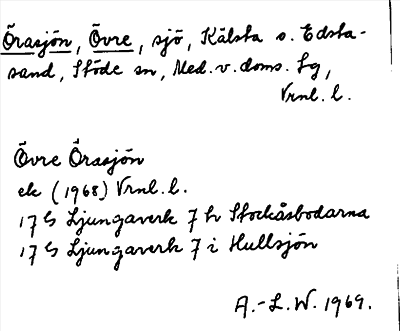 Örasjön, Övre, sjö, Kälsta o. Edsta-
sand, Stöde sn, Med. v. doms. fg,
Vrnl. l.
Övre Örasjön
ek (1968) Vrnl. l.
17 G Ljungaverk 7 h Stockåsbodarna
17 G Ljungaverk 7 i Hullsjön
A.-L. W. 1969.